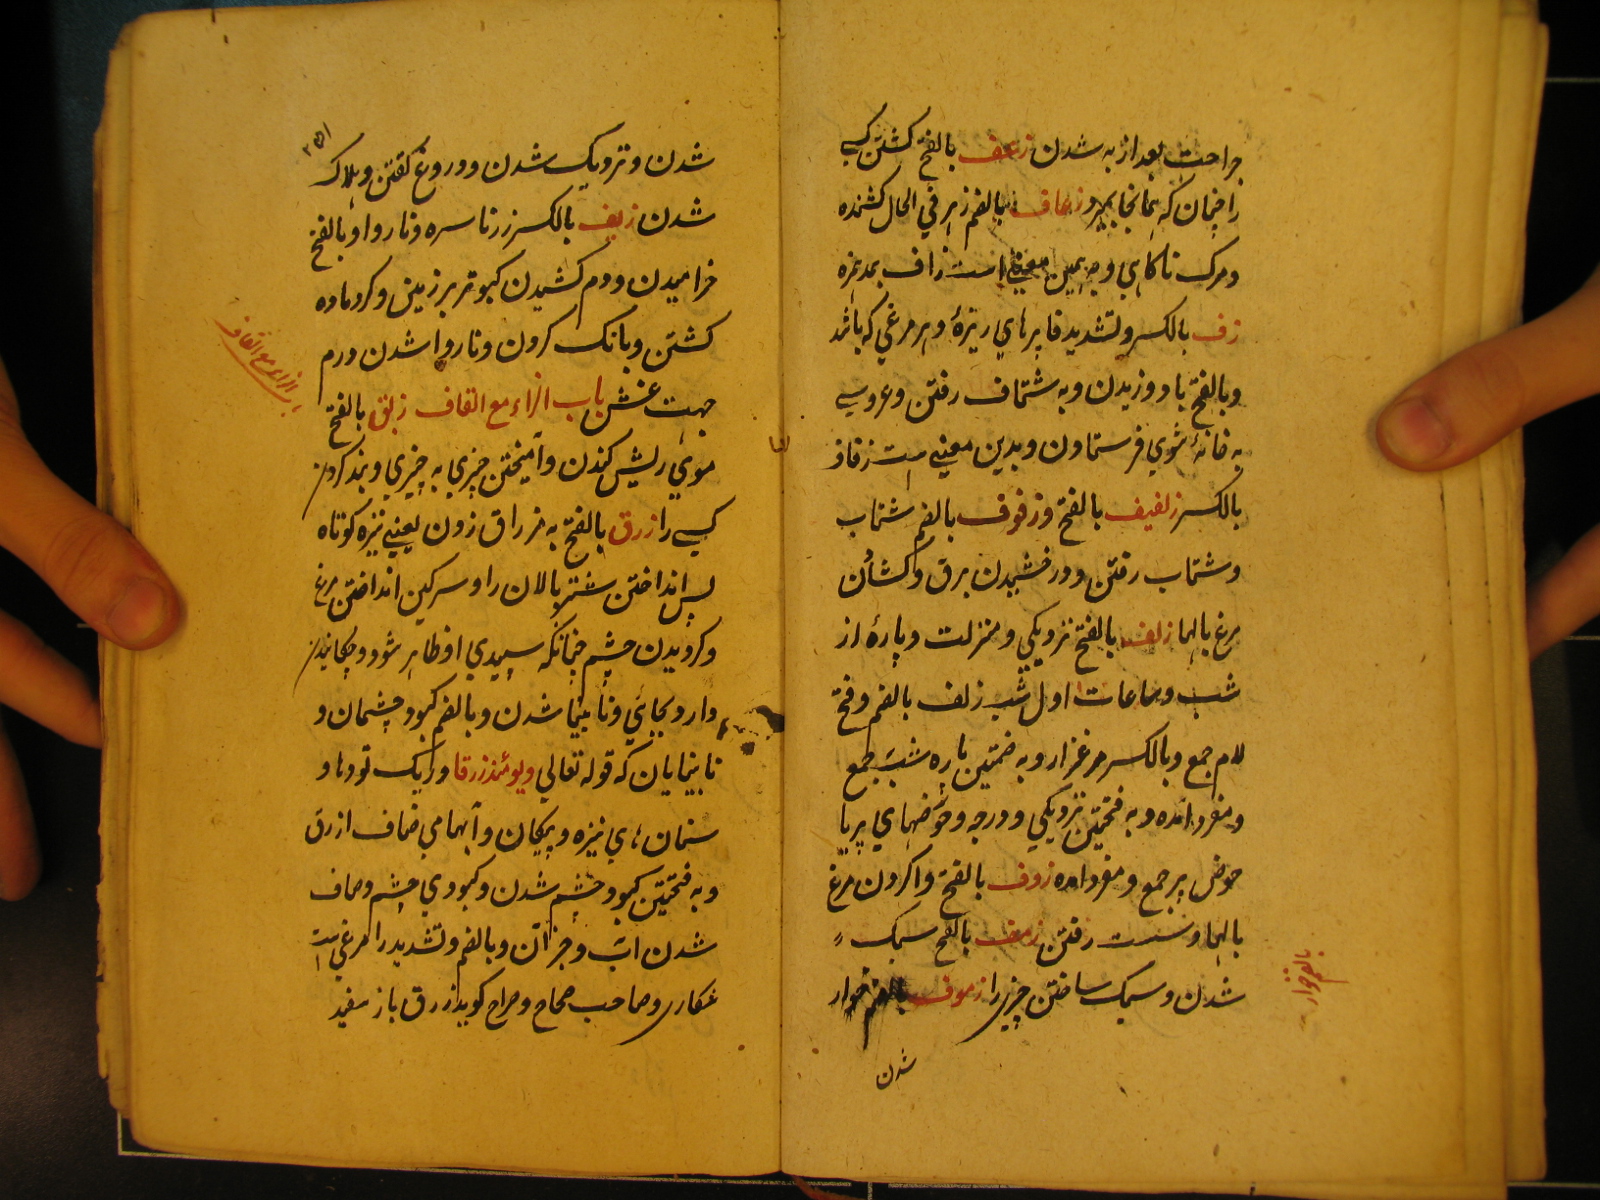 جراحت بعد از به شدن زعف بالفتح کشتن کسی
را چنان که همانجا بمیرد زعاف بالضم زهر في الحال کشنده
و مرک ناکاهي و به همین معني است زاف بمد همزه
زف بالکسر و تشدید فا پرهاي ریزهٔ و هر مرغي که باشد
و بالفتح باد وزیدن و به شتاف رفتن و عروسي
به خانهٔ شوي فرستادن و بدین معني است زفاف
بالکسر زلفیف بالفتح و زفوف بالضم شتاب
و شتاب رفتن و درخشیدن برق و کشأن
مرغ بالها زلف بالفتح نزدیکي و منزلت و پارهٔ از
شب و ساعات اول شب زلف بالضم و فتح
لام جمع و بالکسر مرغزار و به ضمتین پاره شب جمع
و مفرد آمده و به فتحتین نزدیکي و درجه و حوضهاي پر یا
حوض پر جمع و مفرد امده زوف بالفتح وا کردن مرغ
بالها و سست رفتن زهف بالفتح سبک
شدن و سبک ساختن چیزی را زهوف بالضم خوار
شدن
بالضم خوار
۲۵۱
شدن و نزدیک شدن و دروغ کفتن و هلاک
شدن زیف بالکسر زر ناسره و ناروا و بالفتح
خرامیدن و دم کشیدن کبوتر بر زمین و کرد ماده
کشتن و بانک کردن و ناروا شدن درم
جهت غش باب الزاء مع القاف زبق بالفتح
باب الزاء مع القاف
موي ریش کندن و آمیختن چیزي به چیزي و بند کردن
کسي را زرق بالفتح به مزراق زدن یعني نیزه کوتاه
پس انداختن شتر پالان را و سرکین انداختن مرغ
و کردیدن چشم چنانکه سپیدي او ظاهر شود و چکانیدن
دارو بجائي و نابینا شدن و بالضم کبود چشمان و
نابینایان که قوله تعالي ویومئذ زرقا و ریک تودها و
سنان هاي نیزه و پیکان و آبهاي صاف ازرق
و به فتحتین کبود چشم شدن و کبودي چشم و صاف
شدن اب و جز آن و بالضم و تشدید را مرغي است
شکاري و صاحب صحاح و صراح کوید زرق باز سفید